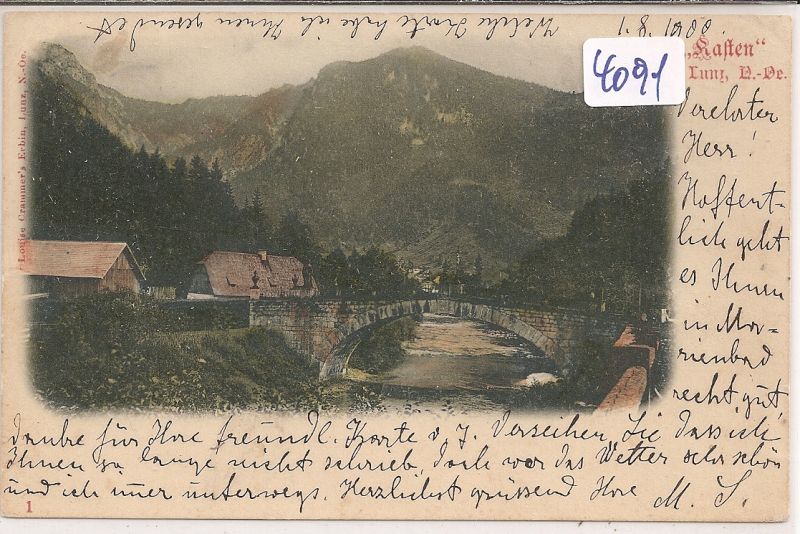 „Kasten“
Lunz, N.-Oe.
4091
1.8.1900.
Welche Karte habe ich Ihnen gesendet
Louise Grammer's Erbin, Lunz, N.-Oe.
Verehrter
Herr!
Hoffent-
lich geht
es Ihnen
in Ma-
rienbad
recht gut,
danke für Ihre freundl. Karte v. 7. Verzeihen Sie dass ich
Ihnen so lange nicht schrieb, doch war das Wetter sehr schön
und ich immer unterwegs. Herzlichst grüssend Ihre M. S.
1